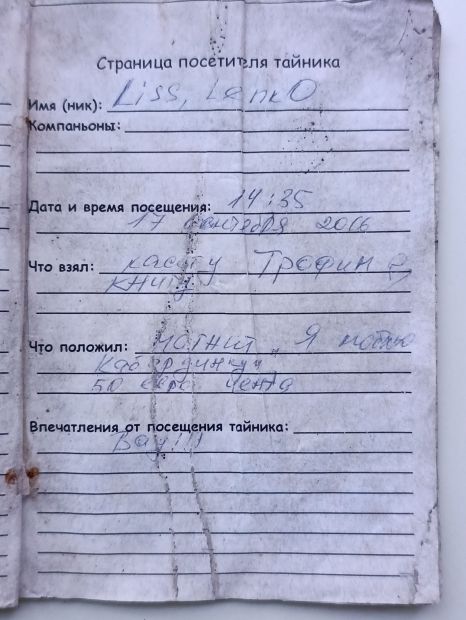 Страница посетителя тайника
Имя (ник): Liss, LenkO
Компаньоны:
Дата и время посещения: 14:35
17 сентября 2016
Что взял: касету Трофим
книгу
Что положил: магнит „Я люблю
Кабардинку"
50 евро цента
Впечатления от посещения тайника:
Вау!!!